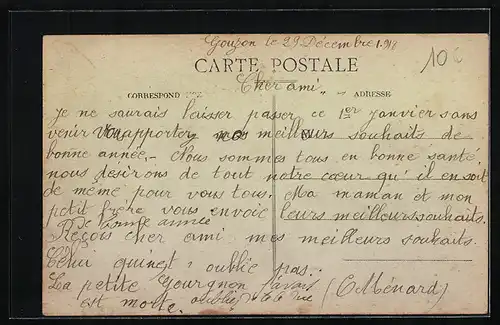 Gouzon le 29 Décembre 1918
10€
CARTE POSTALE
Cher ami
CORRESPONDANCE ADRESSE
Je ne saurais laisser passer ce 1er janvier sans
venir apporter mes meilleurs souhaits de
bonne année. Nous sommes tous en bonne santé
nous désirons de tout notre cœur qu'il en soit
de même pour vous tous. Ma maman et mon
petit frère vous envoie leurs meilleurs souhaits
De bonne année
Reçois cher ami mes meilleurs souhaits.
Celui qui n'est oublie pas.
La petite Gourgnon J'avais
est morte. oublié de te le dire (C Ménard)